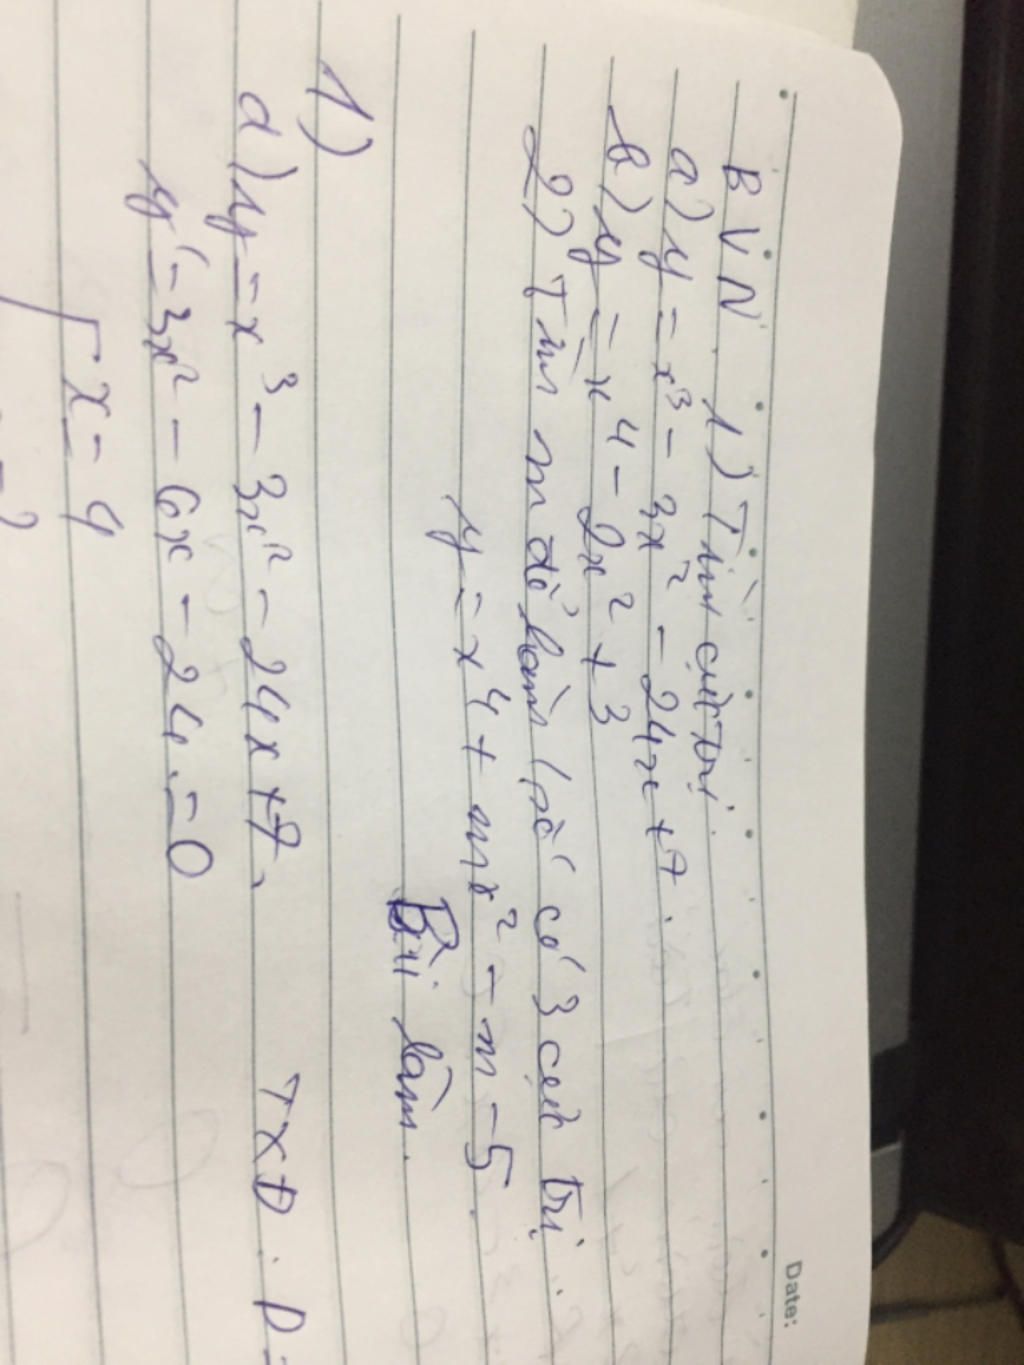 Date:
BVN. 1) Tìm cực trị.
a) y = x³ - 3x² - 24x + 7.
b) y = x⁴ - 2x² + 3
2) Tìm m để hàm số có 3 cực trị.
y = x⁴ + mx² - m - 5.
Bài làm.
1)
a) y = x³ - 3x² - 24x + 7, TXĐ. D =
y' = 3x² - 6x - 24 = 0
[ x = 4